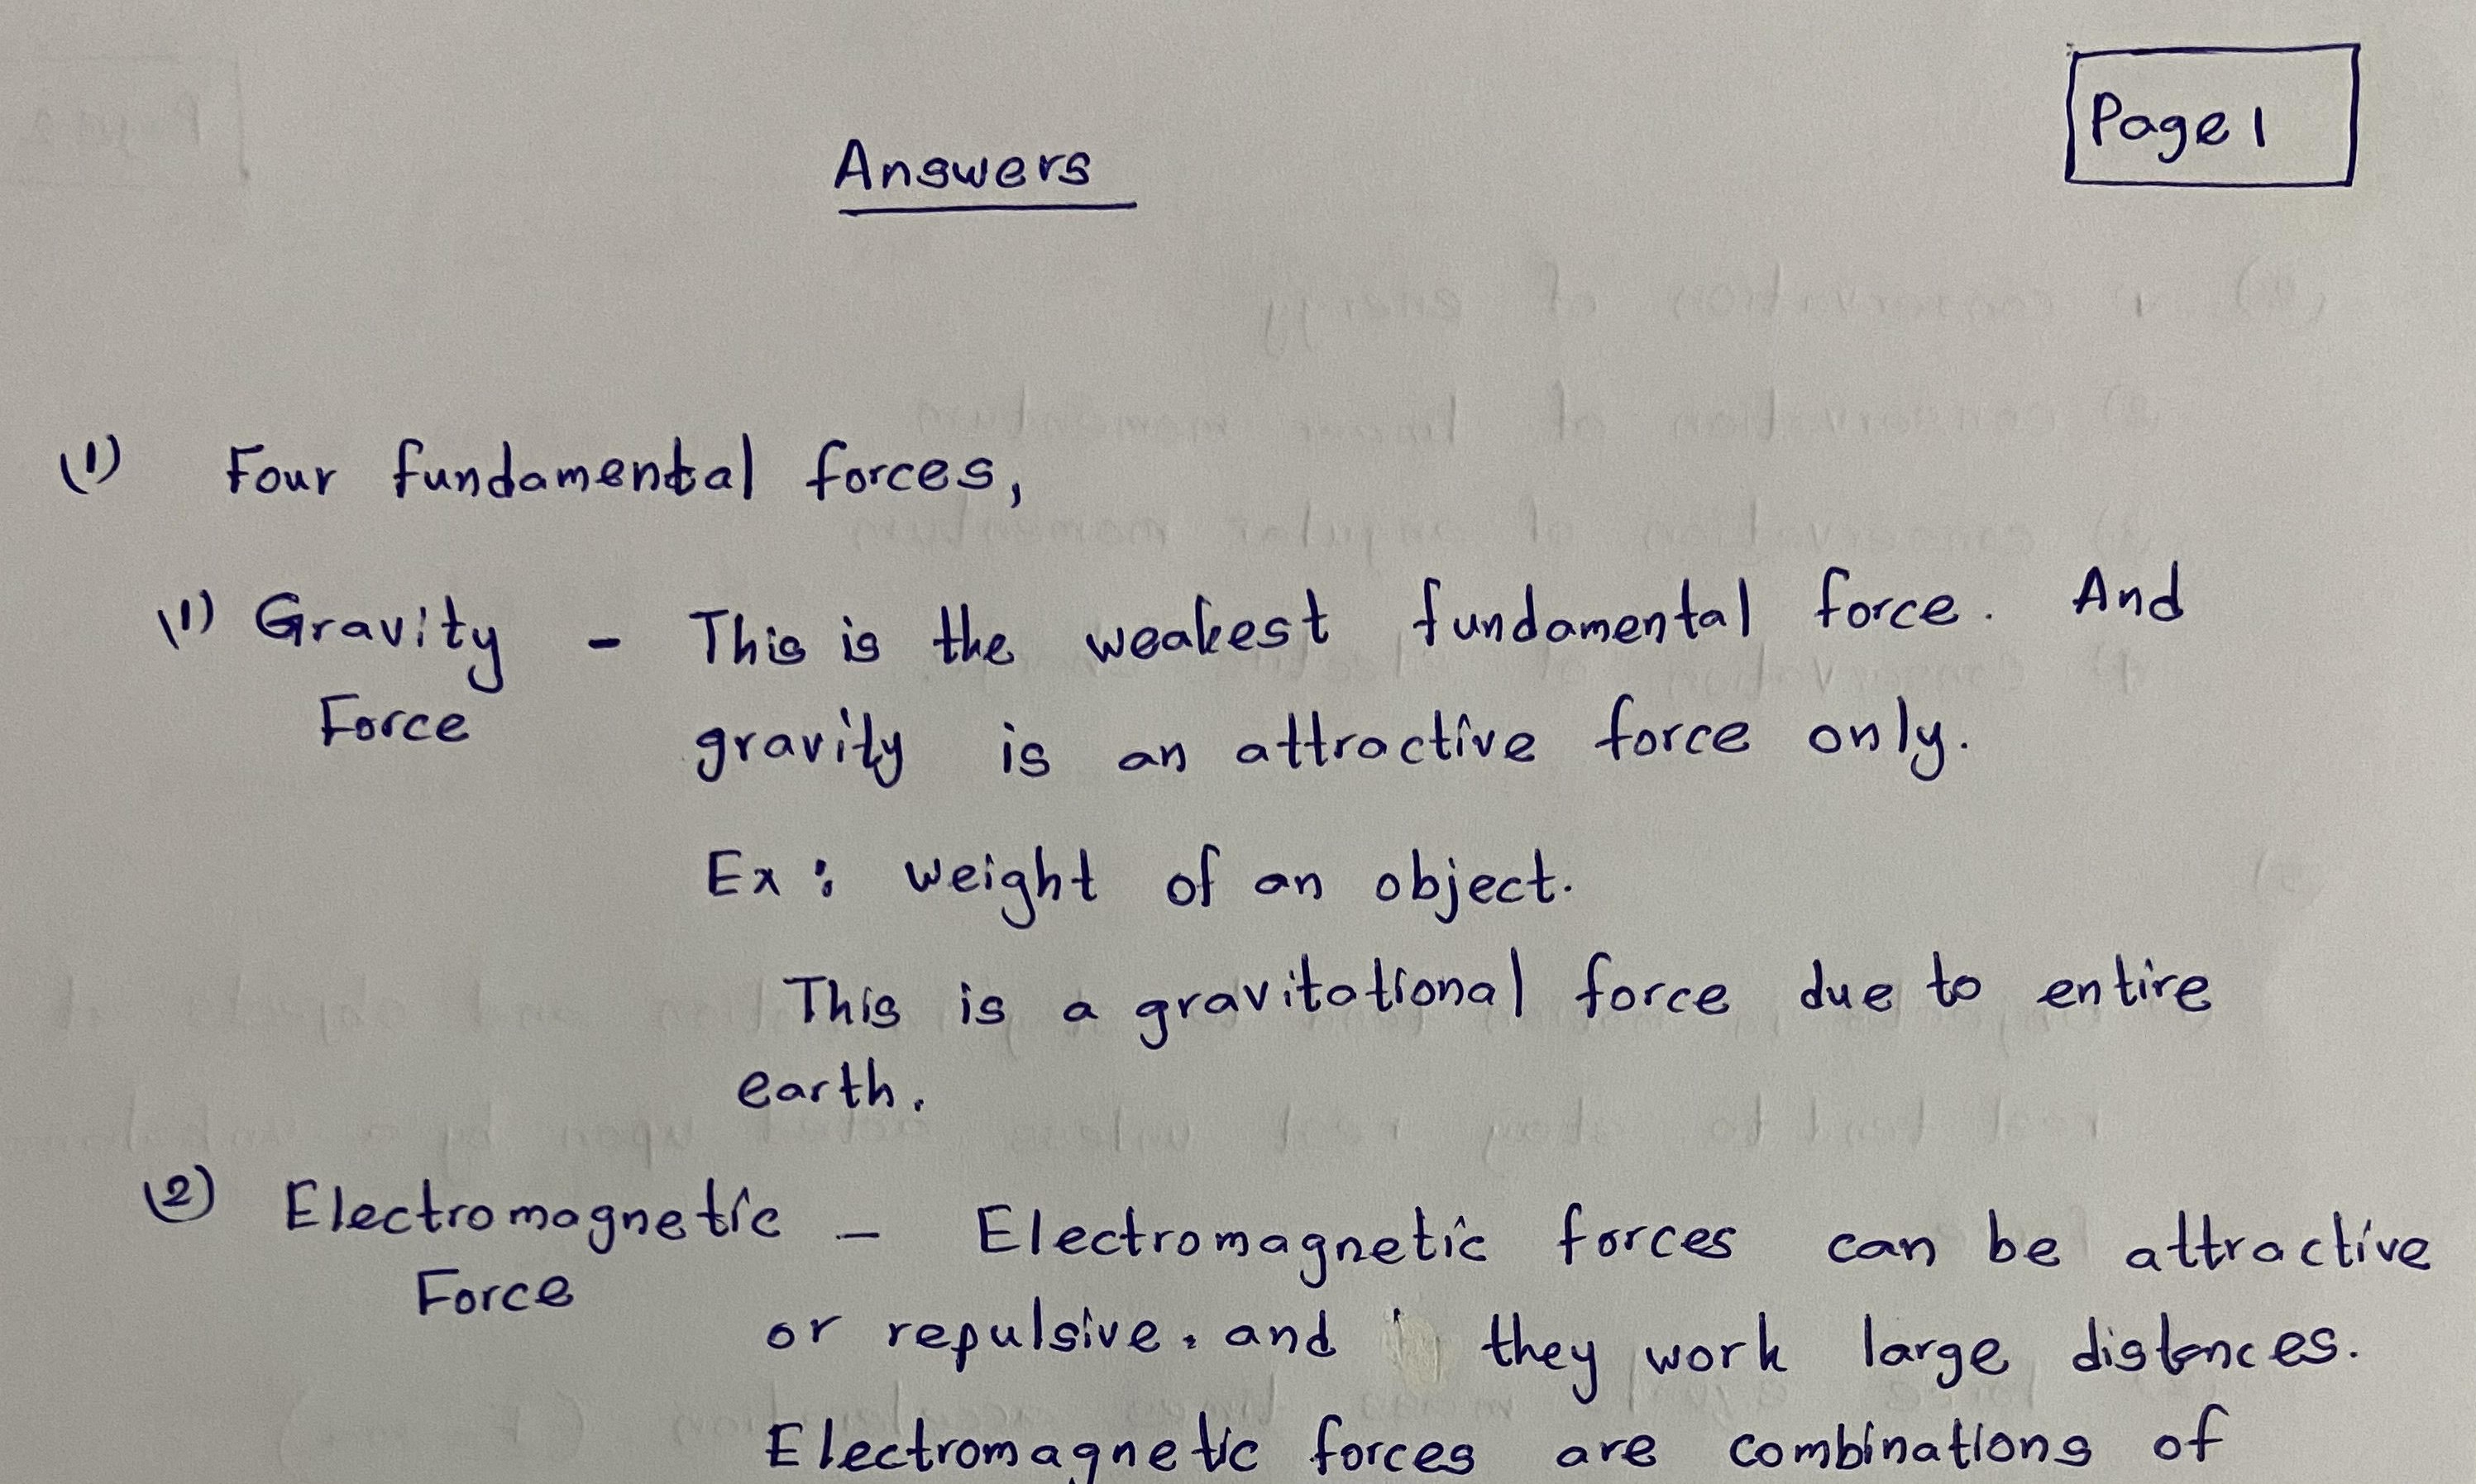 Page 1
Answers
(1) Four fundamental forces,
(1) Gravity - This is the weakest fundamental force. And
Force gravity is an attractive force only.
Ex: weight of an object.
This is a gravitational force due to entire
earth.
(2) Electromagnetic - Electromagnetic forces can be attractive
Force
or repulsive. and they work large distances.
Electromagnetic forces are combinations of